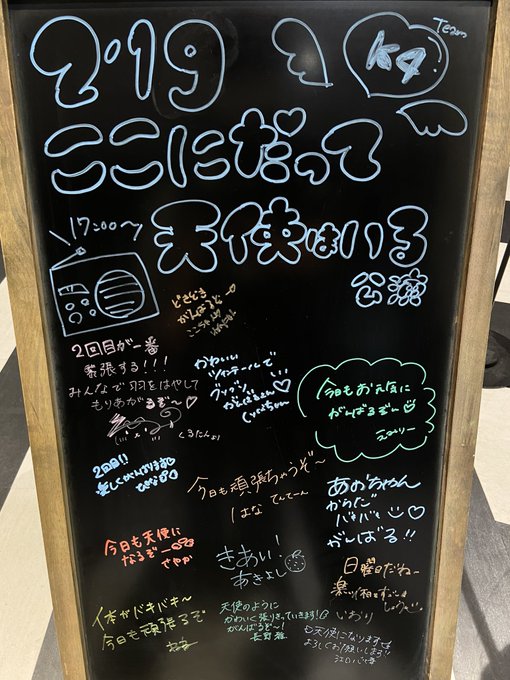 2.19
Team
K4
ここにだって
天使はいる
公演
17:00〜
どきどき
がんばるぞ
2回目が一番
緊張する!!!
みんなで羽をはやして
もりあがるぞ〜♡
くるたんより
かわいい
ツインテールで
がんばるよん♡
今日もお元気に
がんばるぞ〜
2回目!!
楽しくがんばります
今日も頑張ちゃうぞ〜
はな てんてーん
あおちゃん
からだ
バキバキ
がんばる!!
今日も天使に
なるぞ〜
さやか
きあい!
あきよし
日曜日だね〜
体がバキバキ〜
今日も頑張るぞ
天使のように
かわいく張りきっていきます!
がんばるぞ〜!
長野雅
いおり
も天使になります
よろしくお願いします!!